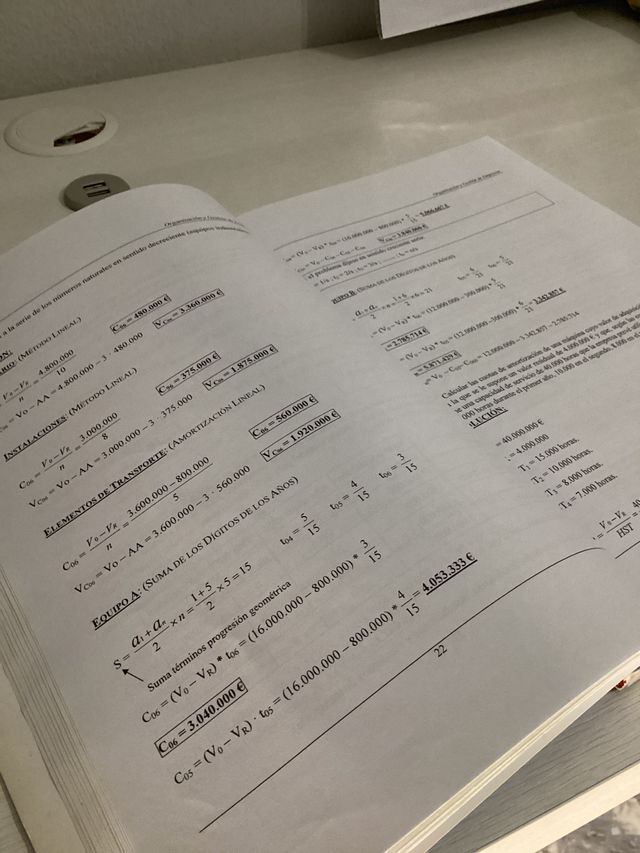 Organización y Gestión de
a la serie de los números naturales en sentido decreciente (equipos
(MÉTODO LINEAL)
V₀ – V_R / n = 4.800.000 / 10
C₀₆ = 480.000 €
= V₀ – AA = 4.800.000 – 3 · 480.000
V_C06 = 3.360.000 €
INSTALACIONES: (MÉTODO LINEAL)
C₀₆ = V₀ – V_R / n = 3.000.000 / 8
C₀₆ = 375.000 €
V_C06 = V₀ – AA = 3.000.000 – 3 · 375.000
V_C06 = 1.875.000 €
ELEMENTOS DE TRANSPORTE: (AMORTIZACIÓN LINEAL)
C₀₆ = V₀ – V_R / n = 3.600.000 – 800.000 / 5
C₀₆ = 560.000 €
V_C06 = V₀ – AA = 3.600.000 – 3 · 560.000
V_C06 = 1.920.000 €
EQUIPO A: (SUMA DE LOS DÍGITOS DE LOS AÑOS)
S = a₁ + aₙ / 2 × n = 1 + 5 / 2 × 5 = 15 t₀₄ = 5/15 t₀₅ = 4/15 t₀₆ = 3/15
Suma términos progresión geométrica
C₀₆ = (V₀ – V_R) * t₀₆ = (16.000.000 – 800.000) * 3/15
C₀₆ = 3.040.000 €
C₀₅ = (V₀ – V_R) · t₀₅ = (16.000.000 – 800.000) * 4/15 = 4.053.333 €
22
Organización y Gestión de Empresas
= (V₀ – V_R) * t₀₄ = (16.000.000 – 800.000) * 5/15 = 5.066.667 €
V_C06 = 3.840.000 €
el problema dijese en sentido creciente sería:
(SUMA DE LOS DÍGITOS DE LOS AÑOS)
a₁ + aₙ / 2 × n = 1 + 6 / 2 × 6 = 21
= (V₀ – V_R) * t₀₆ = (12.000.000 – 300.000) * 5/21
= 2.785.714 €
= (V₀ – V_R) * t₀₅ = (12.000.000 – 300.000) * 6/21 = 3.342.857 €
= 5.871.429 €
Calcular las cuotas de amortización de una máquina cuyo valor de
a la que se le supone un valor residual de 4.000.000 €, y que, según la
se una capacidad de servicio de 40.000 horas que la empresa prevé
000 horas durante el primer año, 10.000 en el segundo, 8.000 en el
= 40.000.000 €
= 4.000.000
T₁ = 15.000 horas.
T₂ = 10.000 horas.
T₃ = 8.000 horas.
T₄ = 7.000 horas.
= V₀ – V_R / HST = 40